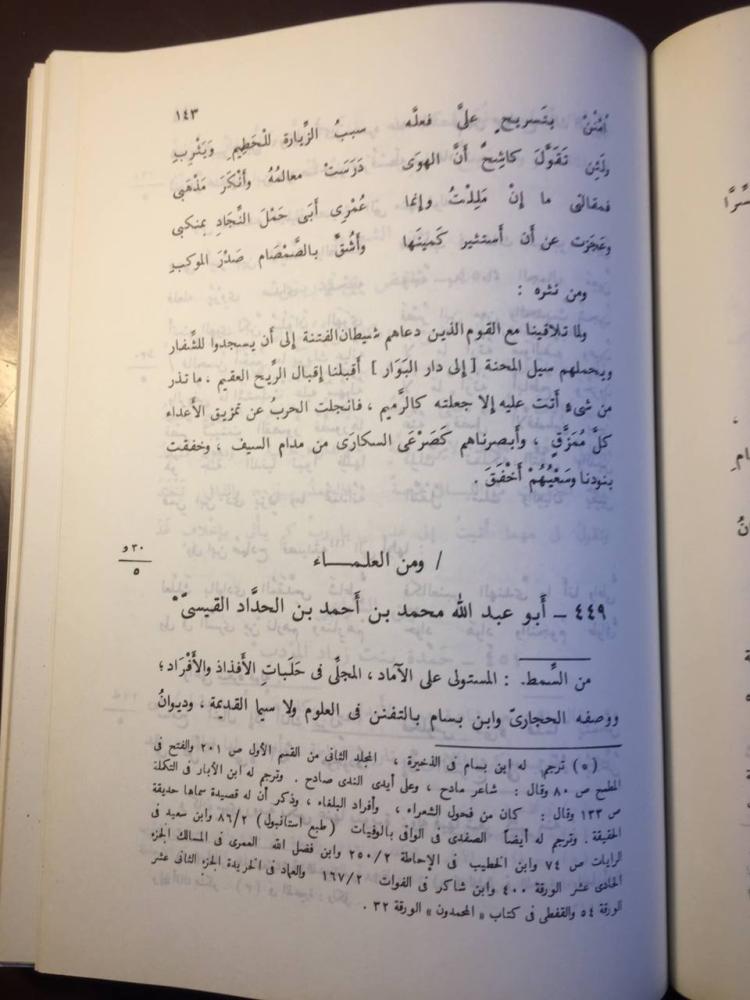 ١٤٣
أُمْنُنْ بِتَسريحٍ علىَّ فعلَه سببُ الزِّيارة للْحَطِيمِ وَيَثْرِبِ
ولَئِن تَقَوَّلَ كاشِحٌ أنَّ الهوَى دَرَسَتْ معالمُهُ وأَنْكَرَ مَذْهَبى
فمقالتى ما إنْ مَلِلْتُ وإنما عُمْرِى أَبَى حَمْلَ النِّجَادِ بمنكبى
وعَجَزت عن أن أستثير كَمِينَها وأَشُقَّ بالصَّمْصَام صَدْرَ الموكبِ
ومن نثره :
ولما تلاقينا مع القوم الذين دعاهم شيطان الفتنة إلى أن يسجدوا للشِّفار
ويحملهم سيل المحنة [ إلى دار البَوَار ] أقبلنا إقبال الرِّيح العقيم ، ما تذر
من شىء أتت عليه إلا جعلته كالرَّميم ، فانجلت الحربُ عن تمزيق الأعداء
كلَّ مُمَزَّقٍ ، وأَبصرناهم كَصَرْعَى السكارَى من مدام السيف ، وخفقت
بنودنا وَسَعْيُهُمْ أَخْفَقَ .
٣٠ و
٥
/ ومن العلمــاء
٤٤٩ – أبو عبد الله محمد بن أحمد بن الحدَّاد القيسىّ*
من السِّمط : المستولى على الآماد ، المجلَّى فى حَلَباتِ الأفذاذ والأَفْرَاد ؛
ووصفه الحجارىّ وابن بسام بالتفنن فى العلوم ولا سيما القديمة ، وديوانُ
(*) ترجم له ابن بسام فى الذخيرة ، المجلد الثانى من القسم الأول ص ٢٠١ والفتح فى
المطمح ص ٨٠ وقال : شاعر مادح ، وعلى أيدى الندى صادح . وترجم له ابن الأبار فى التكلة
ص ١٣٣ وقال : كان من فحول الشعراء ، وأفراد البلغاء ، وذكر أن له قصيدة سماها حديقة
الحقيقة . وترجم له أيضاً الصفدى فى الوافى بالوفيات (طبع استانبول) ٨٦/٢ وابن سعيد فى
الرايات ص ٧٤ وابن الخطيب فى الإحاطة ٢٥٠/٢ وابن فضل الله العمرى فى المسالك الجزء
الحادى عشر الورقة ٤٠٠ وابن شاكر فى الفوات ١٦٧/٢ والعماد فى الخريدة الجزء الثانى عشر
الورقة ٥٤ والقفطى فى كتاب « المحمدون » الورقة ٣٢ .